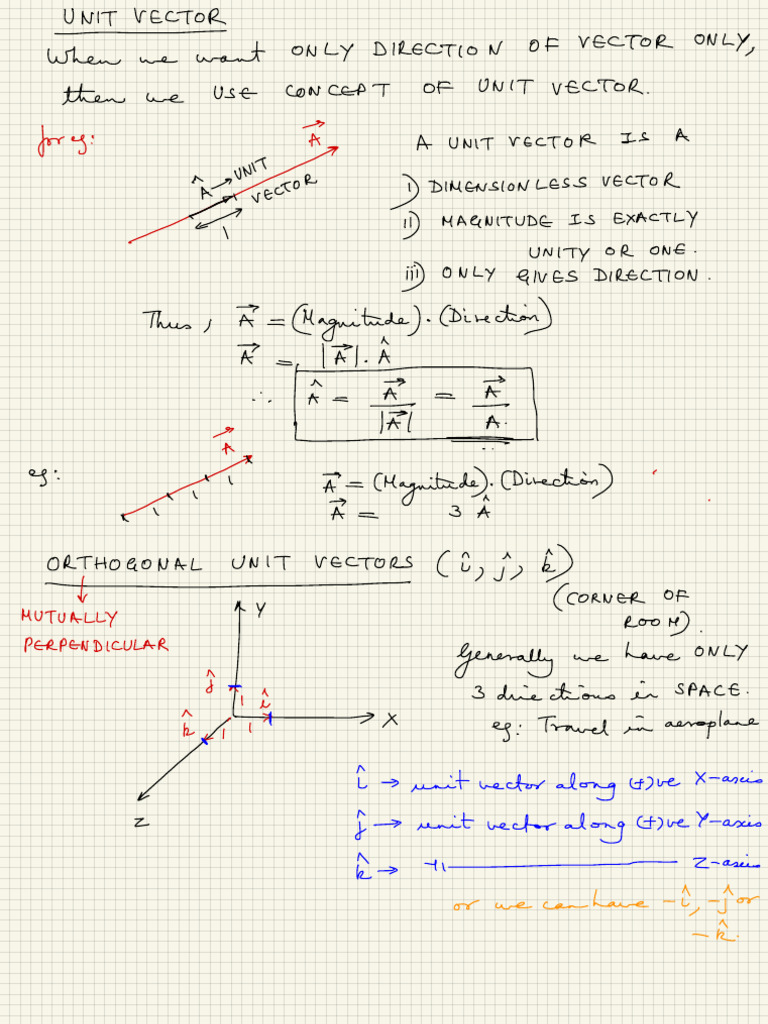 UNIT VECTOR
When we want ONLY DIRECTION OF VECTOR ONLY,
then we USE CONCEPT OF UNIT VECTOR.
for eg:
A⃗
Â → UNIT VECTOR
1
A UNIT VECTOR IS A
i) DIMENSIONLESS VECTOR
ii) MAGNITUDE IS EXACTLY
UNITY OR ONE.
iii) ONLY GIVES DIRECTION.
Thus, A⃗ = (Magnitude).(Direction)
A⃗ = |A⃗|.Â
∴ Â = A⃗/|A⃗| = A⃗/A.
eg:
A⃗
1 1 1
A⃗ = (Magnitude).(Direction)
A⃗ = 3 Â
ORTHOGONAL UNIT VECTORS (î, ĵ, k̂)
MUTUALLY
PERPENDICULAR
(CORNER OF
ROOM).
Y
ĵ
1
î
k̂
1
1
X
Z
Generally we have ONLY
3 directions in SPACE.
eg: Travel in aeroplane
î → unit vector along (+)ve X-axis
ĵ → unit vector along (+)ve Y-axis
k̂ → –11– Z-axis
or we can have -î, -ĵ or
-k̂.